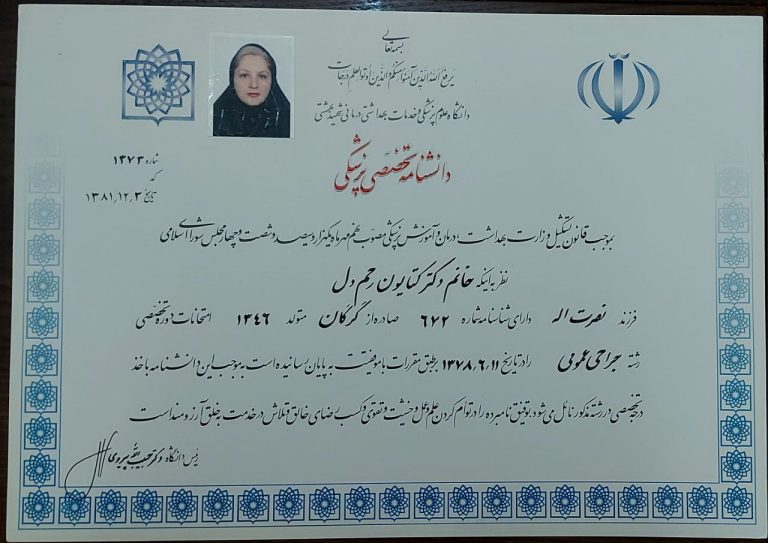 بسمه تعالی
یرفع الله الذین آمنوا منکم و الذین اوتوا العلم درجات
دانشگاه علوم پزشکی و خدمات بهداشتی درمانی شهید بهشتی
دانشنامه تخصصی پزشکی
شماره ۱۳۷۳
کد
تاریخ ۱۳۸۱,۱۲,۳
بموجب قانون تشکیل وزارت بهداشت، درمان و آموزش پزشکی مصوب نهم مهرماه یکهزار و سیصد و شصت و چهار مجلس شورای اسلامی
نظر به اینکه خانم دکتر کتایون رحم دل
فرزند نصرت اله دارای شناسنامه شماره ۶۷۲ صادره از گرگان متولد ۱۳۴۶ امتحانات دوره تخصصی
رشته جراحی عمومی را در تاریخ ۱۳۷۸,۶,۱۱ بر طبق مقررات با موفقیت به پایان رسانیده است به موجب این دانشنامه با خذ
درجه تخصصی در رشته مذکور نائل می شود. توفیق نامبرده را در توام کردن علم و عمل و خشیت و تقوی و کسب رضای خالق و تلاش در خدمت به خلق آرزومند است
رئیس دانشگاه دکتر حبیب الله پیروی